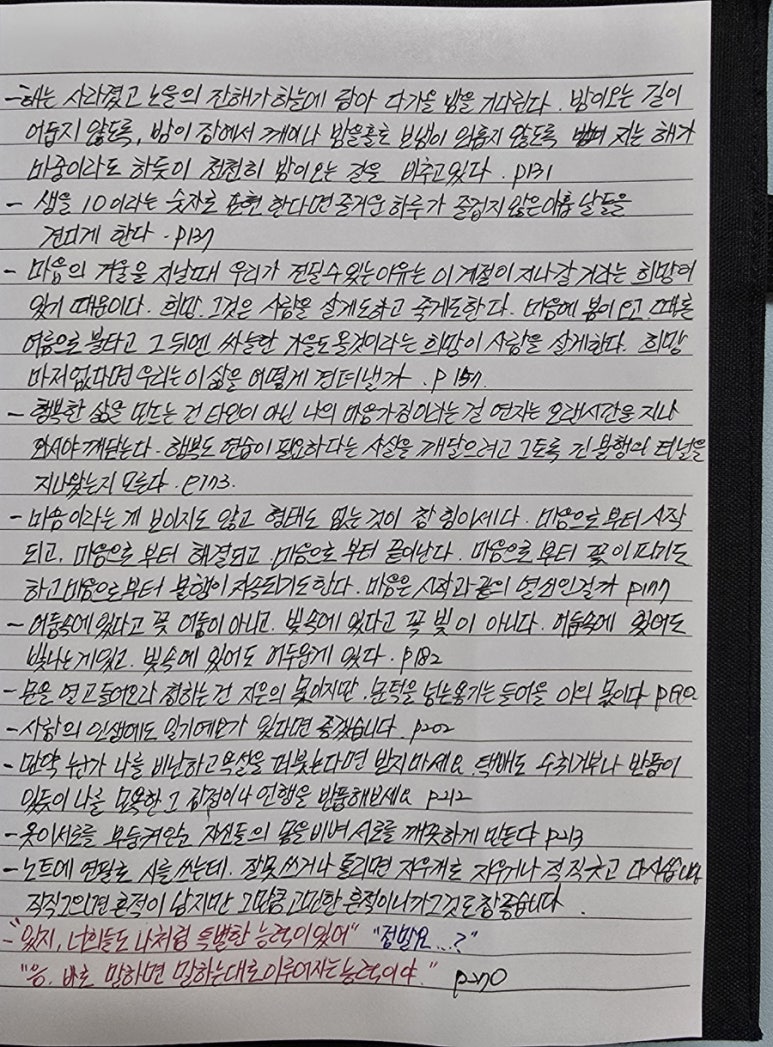 - 해는 사라졌고 노을의 잔해가 하늘에 남아 다가올 밤을 기다린다. 밤이 오는 길이
어둡지 않도록, 밤이 잠에서 깨어나 밤을 홀로 보냄이 외롭지 않도록 지는 해가
마중이라도 하듯이 천천히 밤이 오는 길을 비추고 있다. p131
- 생을 10이라는 숫자로 표현한다면 즐거운 하루가 즐겁지 않은 아홉 날들을
견디게 한다. p137
- 마음의 겨울을 지날 때 우리가 견딜 수 있는 이유는 이 계절이 지나갈 거라는 희망이
있기 때문이다. 희망. 그것은 사람을 살게도 하고 죽게도 한다. 마음에 봄이 오고, 때론
여름으로 불타고 그 뒤엔 싸늘한 가을도 올 것이라는 희망이 사람을 살게 한다. 희망
마저 없다면 우리는 이 삶을 어떻게 견뎌낼까. p157.
- 행복한 삶을 만드는 건 타인이 아닌 나의 마음가짐이라는 걸 연자는 오랜 시간을 지나
와서야 깨닫는다. 행복도 연습이 필요하다는 사실을 깨달으려고 그토록 긴 불행의 터널을
지나왔는지 모른다. p173.
- 마음이라는 게 보이지도 않고 형태도 없는 것이 참 힘이 세다. 마음으로부터 시작
되고, 마음으로부터 해결되고 마음으로부터 끝이 난다. 마음으로부터 꽃이 피기도
하고 마음으로부터 불행이 지속되기도 한다. 마음은 시작과 끝의 열쇠인걸까 p177
- 어둠속에 있다고 꼭 어둠이 아니고. 빛속에 있다고 꼭 빛이 아니다. 어둠속에 있어도
빛나는 게 있고. 빛속에 있어도 어두운게 있다. p182
- 문을 열고 들어오라 청하는 건 지은의 몫이지만, 문턱을 넘는 용기는 들어올 이의 몫이다 p190
- 사람의 인생에도 일기예보가 있다면 좋겠습니다. p202
- 만약 누군가 나를 비난하고 욕설을 퍼붓는다면 받지 마세요. 택배도 수취거부나 반품이
있듯이 나를 모욕한 그 감정이나 언행을 반품해보세요 p212
- 옷이 서로를 부둥켜안은 자신들의 몸을 비벼 서로를 깨끗하게 만든다 p213
- 노트에 연필로 시를 쓰는데. 잘못 쓰거나 틀리면 지우개로 지우거나 직직 긋고 다시 씁니다
직직 그으면 흔적이 남지만 그만큼 고민한 흔적이니까 그것도 참 좋습니다.
- "있지, 너희들도 나처럼 특별한 능력이 있어" "정말요...?"
"응. 바로 말하면 말하는대로 이루어지는 능력이야." p270